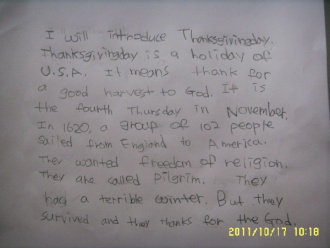 I will introduce Thanksgivingday.
Thanksgivingday is a holiday of
U.S.A. It means thank for
a good harvest to God. It is
the fourth Thursday in November.
In 1620, a group of 102 people
sailed from England to America.
They wanted freedom of religion.
They are called pilgrim. They
had a terrible winter. But they
survived and they thanks for the God.
2011/10/17 10:18